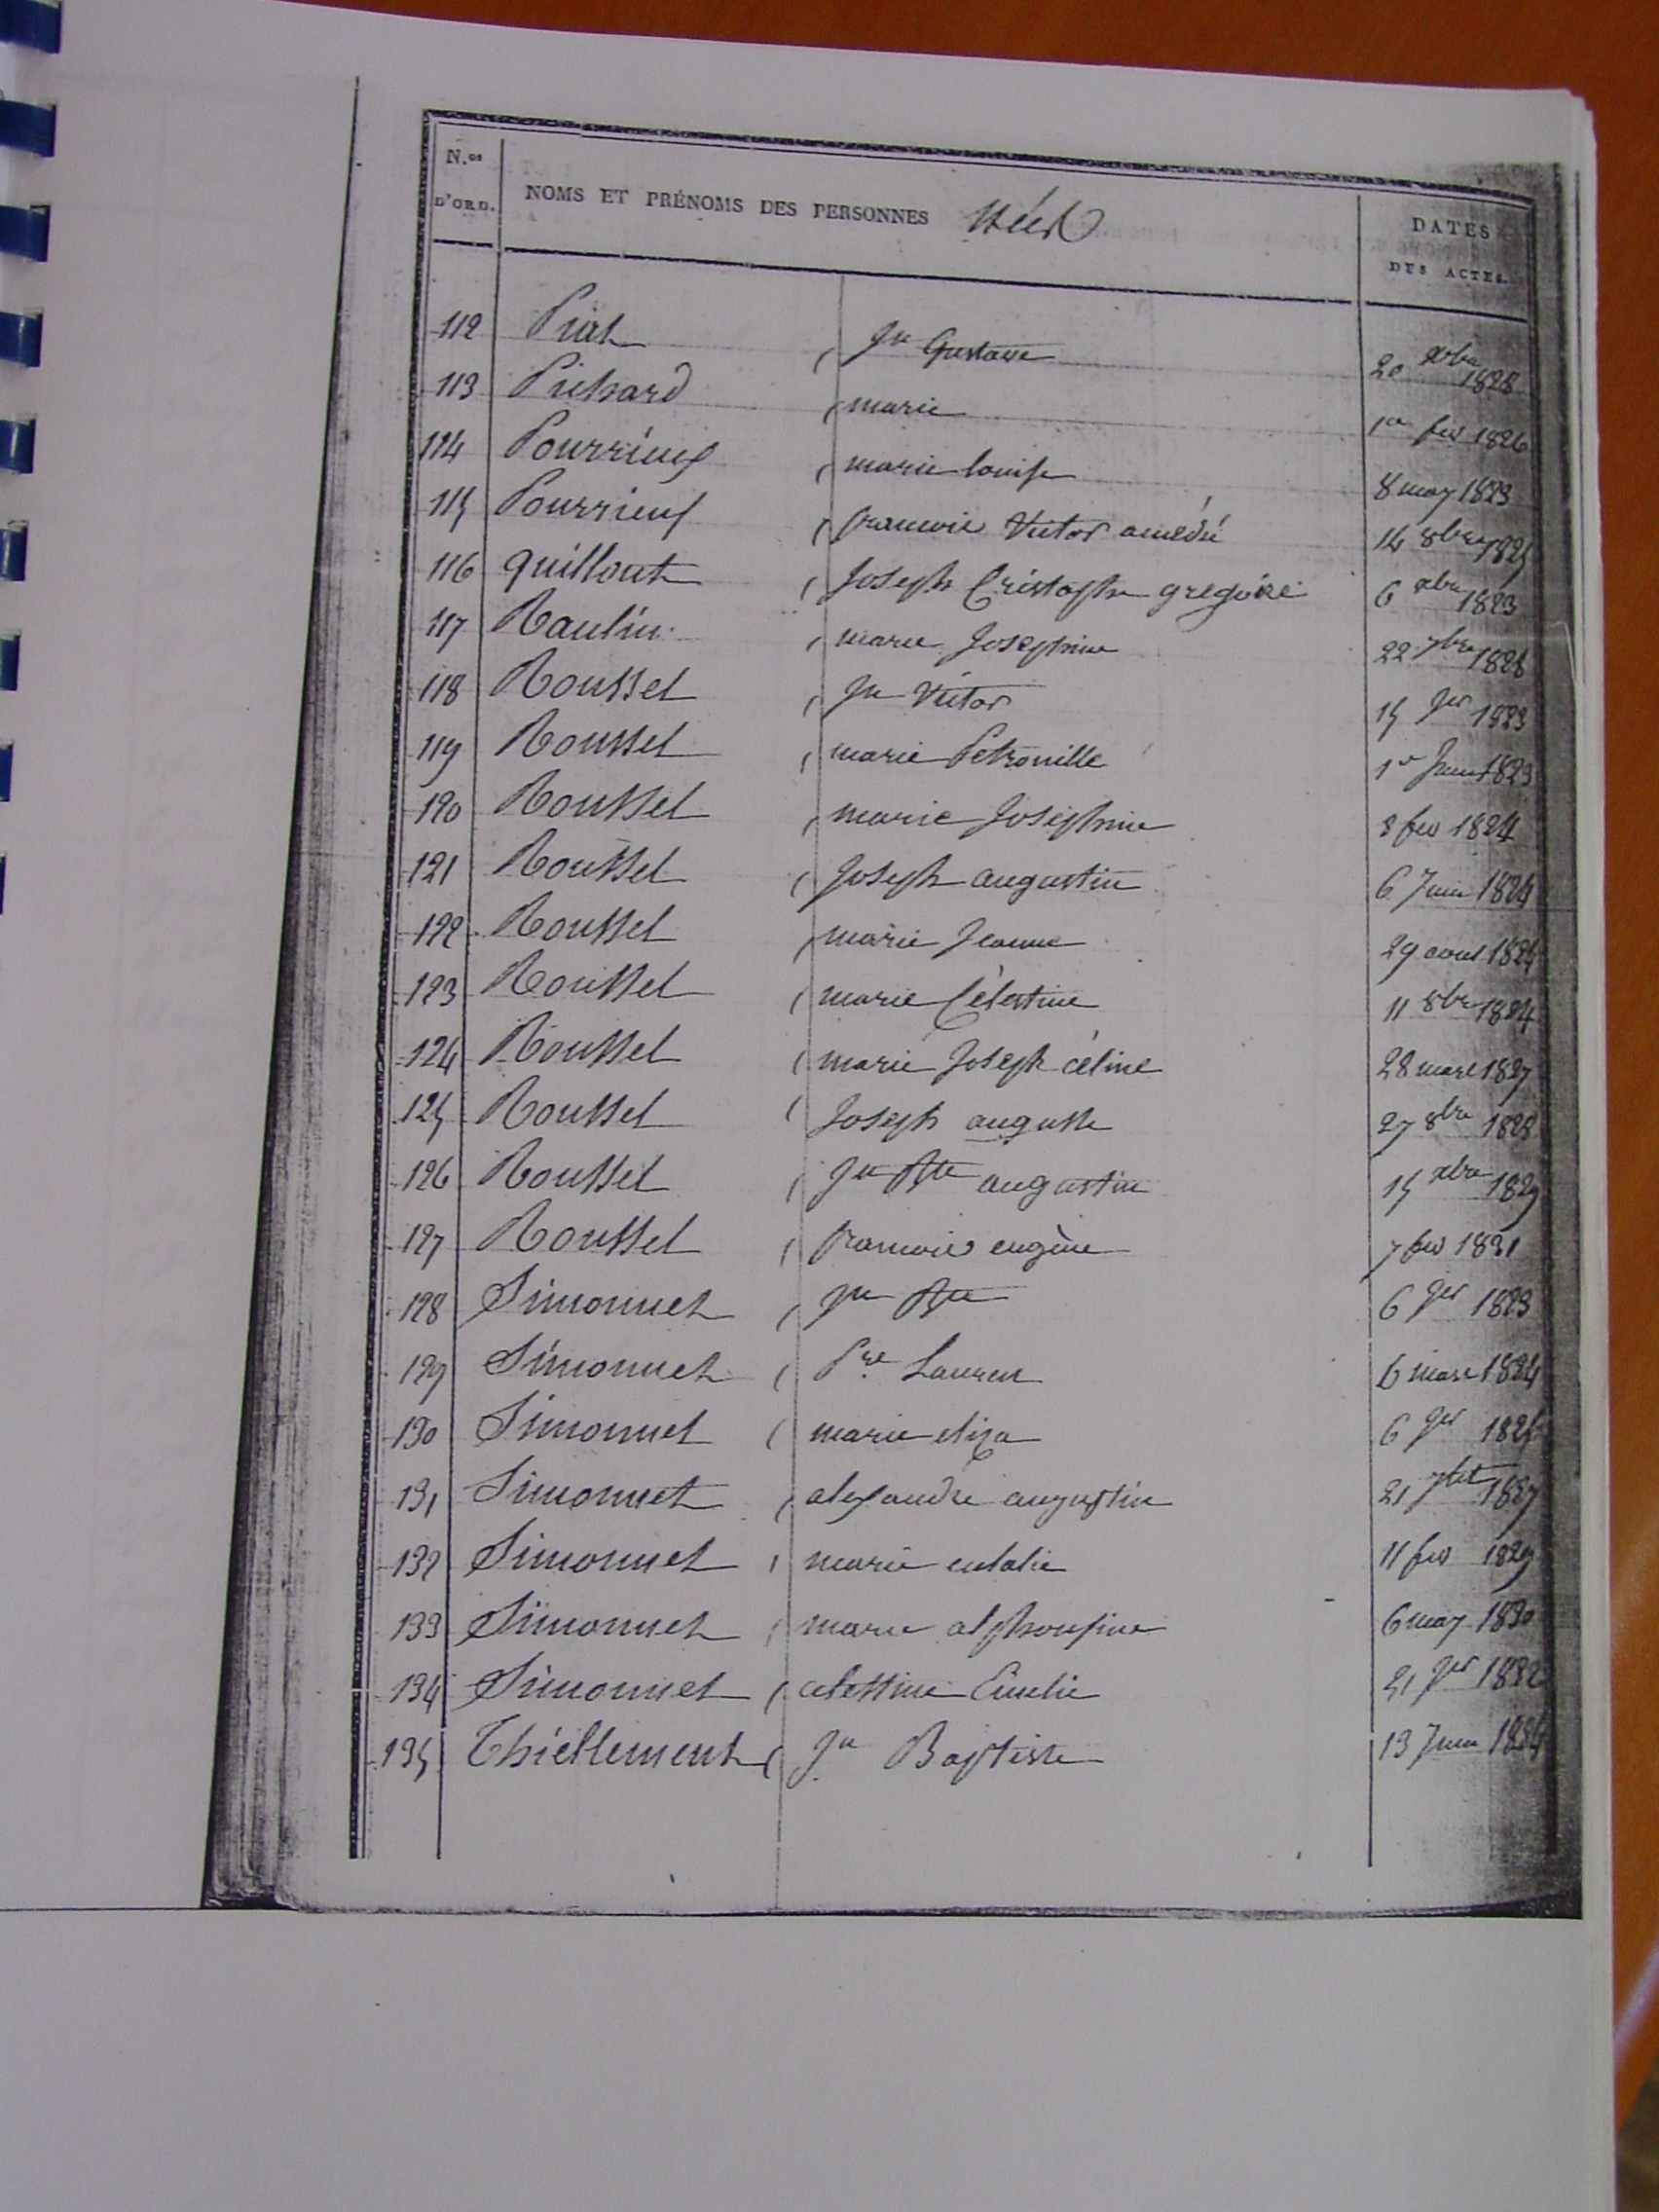 N.os D'ORD. NOMS ET PRÉNOMS DES PERSONNES Nées DATES DES ACTES.
112 Piat, Jn Gustave 20 xbre 1828
113 Pichard, marie 1er fev 1826
114 Pourrieux, marie louise 8 may 1823
115 Pourrieux, francois Victor amédé 14 8bre 1825
116 quillout, Joseph Cristophe gregoire 6 xbre 1823
117 Raulin, marie Josephine 22 7bre 1828
118 Roussel, Jn Victor 15 Jer 1823
119 Roussel, marie Petronille 1er 1823
120 Roussel, marie Joséphine 8 fev 1824
121 Roussel, Joseph augustin 6 Juin 1824
122 Roussel, marie Jeanne 29 1824
123 Roussel, marie Célestine 11 8bre 1824
124 Roussel, marie Joseph céline 28 mars 1827
125 Roussel, Joseph auguste 27 8bre 1828
126 Roussel, Jn Bte augustin 15 xbre 1829
127 Roussel, francois eugène 7 fev 1831
128 Simonnet, Jn Bte 6 Jer 1823
129 Simonnet, Pre Lauren 6 mars 1824
130 Simonnet, marie eliza 6 Jer
131 Simonnet, alexandre augustin 21 1827
132 Simonnet, marie eulalie 11 fev 1829
133 Simonnet, marie alphonsine 6 may 1830
134 Simonnet, celestine Emelie 21 Jer 1832
135 Thiellement, Jn Baptiste 13 Juin 1824